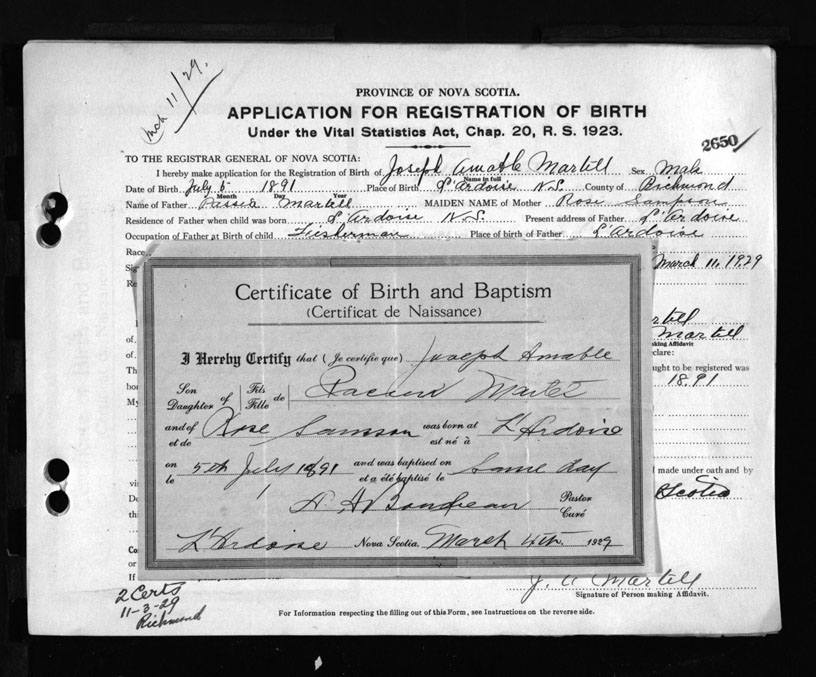 Mch 11/29.
PROVINCE OF NOVA SCOTIA.
APPLICATION FOR REGISTRATION OF BIRTH
Under the Vital Statistics Act, Chap. 20, R. S. 1923.
2650
TO THE REGISTRAR GENERAL OF NOVA SCOTIA:
I hereby make application for the Registration of Birth of Joseph Amable Martell Sex Male
Name in full
Date of Birth July 5 1891 Place of Birth L'Ardoise N.S. County of Richmond
Month Day Year
Name of Father Martell MAIDEN NAME of Mother Rose Sampson
Residence of Father when child was born L'Ardoise N.S. Present address of Father L'Ardoise
Occupation of Father at Birth of child Fisherman Place of birth of Father L'Ardoise
Race
March 11, 1929
Certificate of Birth and Baptism
(Certificat de Naissance)
I Hereby Certify that (Je certifie que) Joseph Amable
Son Daughter of Fils Fille de Martel
and of et de Rose Samson was born at est né à L'Ardoise
on le 5th July 1891 and was baptised on et a été baptisé le same day
Pastor Curé
L'Ardoise Nova Scotia, March 4th 1929
Martell
making Affidavit
declare:
ought to be registered was
1891
made under oath and by
Scotia
J. A. Martell
Signature of Person making Affidavit.
2 Certs
11-3-29
Richmond
For Information respecting the filling out of this Form, see Instructions on the reverse side.